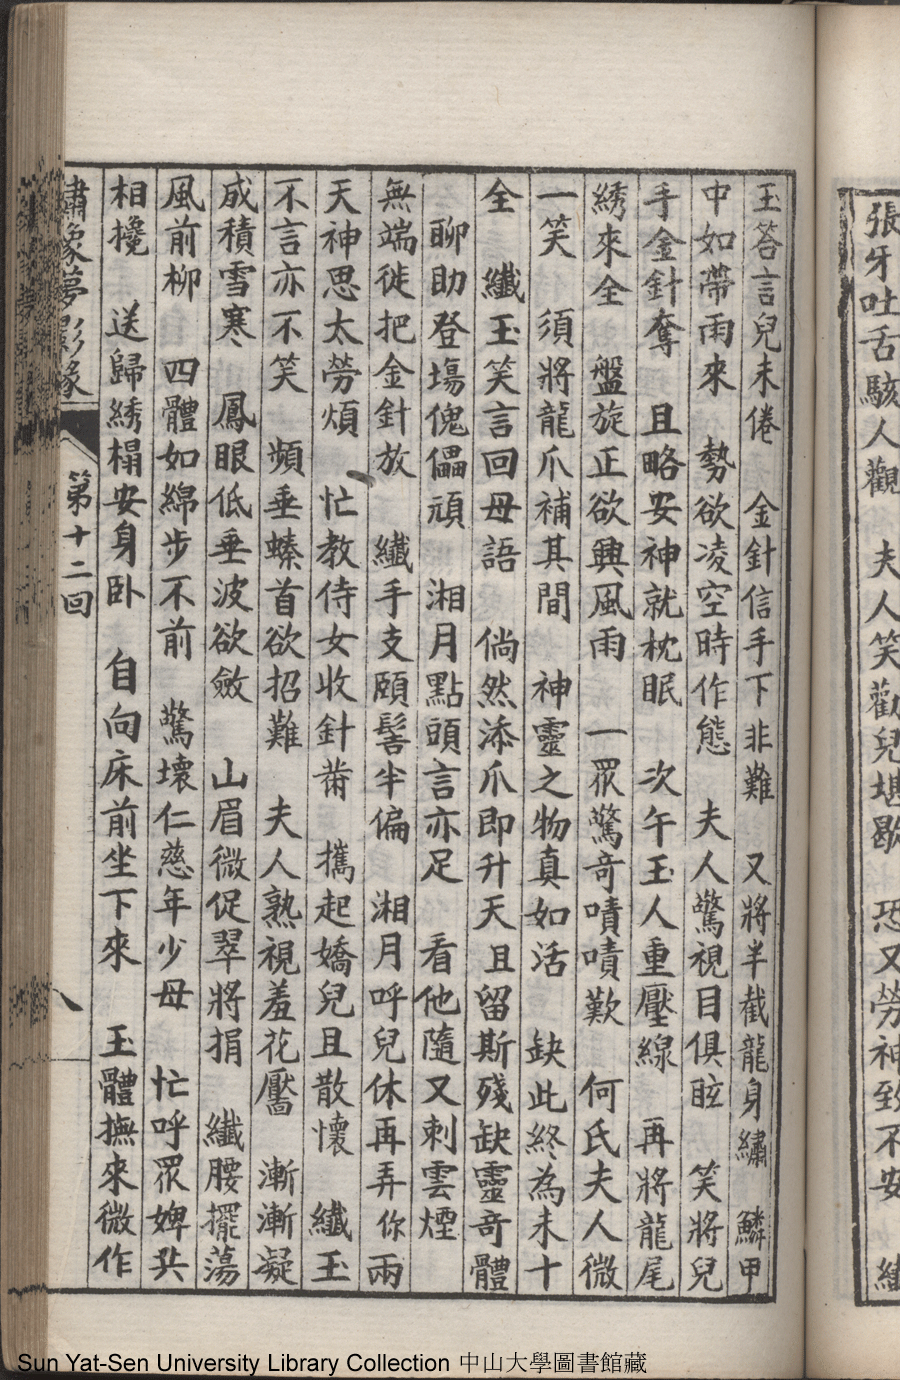 張牙吐舌駭人觀　夫人笑勸兒堪歇　恐又勞神致不安
玉答言兒未倦　金針信手下非難　又將半截龍身繡　鱗甲
中如帶雨來　勢欲凌空時作態　夫人驚視目俱眩　笑將兒
手金針奪　且略安神就枕眠　次午玉人重壓線　再將龍尾
綉來全　盤旋正欲興風雨　一眾驚奇嘖嘖歎　何氏夫人微
一笑　須將龍爪補其間　神靈之物真如活　缺此終為未十
全　纖玉笑言回母語　倘然添爪即升天　且留斯殘缺靈奇體
聊助登場傀儡頑　湘月點頭言亦足　看他隨又刺雲煙
無端徙把金針放　纖手支頤髻半偏　湘月呼兒休再弄　你兩
天神思太勞煩　忙教侍女收針黹　攜起嬌兒且散懷　纖玉
不言亦不笑　頻垂螓首欲招難　夫人熟視羞花靨　漸漸凝
成積雪寒　鳳眼低垂波欲斂　山眉微促翠將捐　纖腰擺蕩
風前柳　四體如綿步不前　驚壞仁慈年少母　忙呼眾婢共
相攙　送歸綉榻安身臥　自向床前坐下來　玉體撫來微作
繡像夢影緣　第十二回　八
Sun Yat-Sen University Library Collection 中山大學圖書館藏